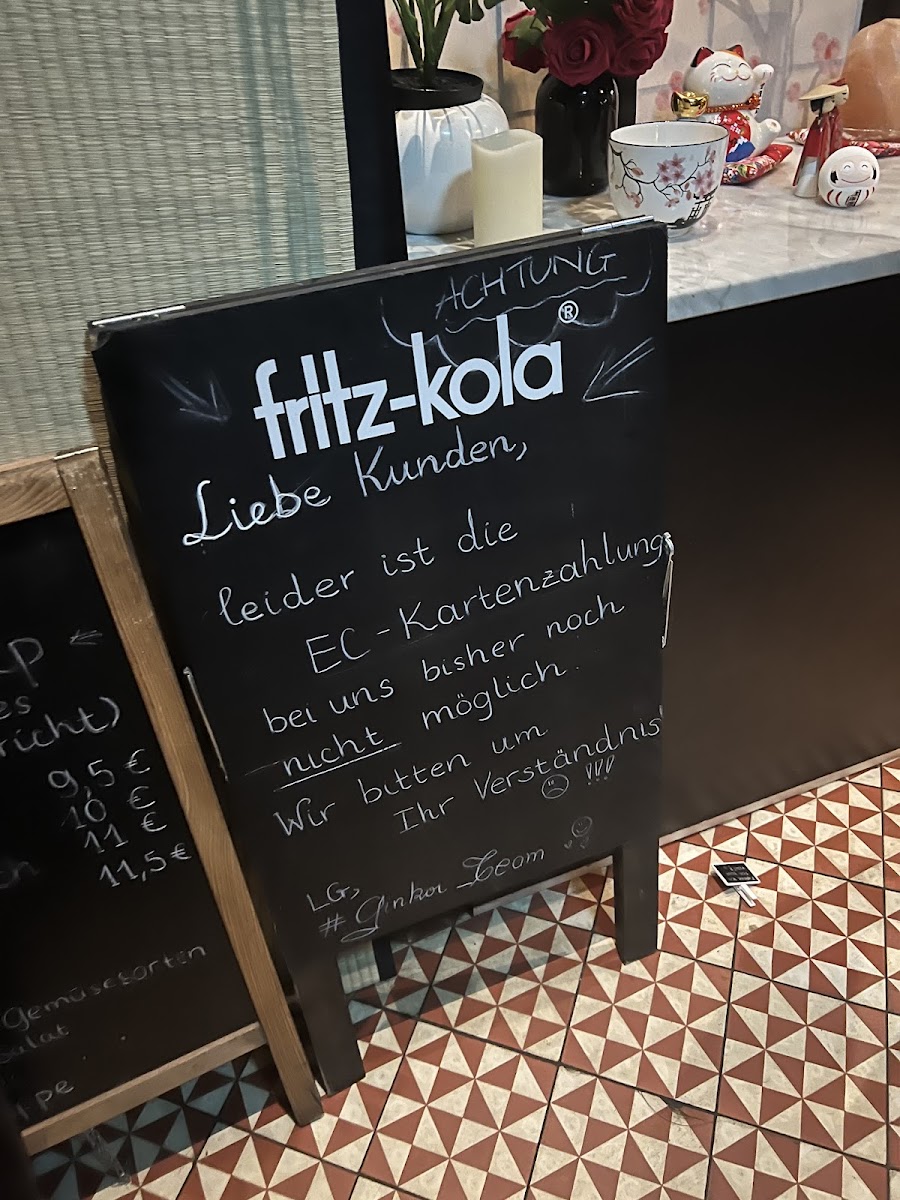 ACHTUNG
fritz-kola®
Liebe Kunden,
leider ist die
EC-Kartenzahlung
bei uns bisher noch
nicht möglich.
Wir bitten um
Ihr Verständnis!
!!!
LG,
# Ginkou Team
9,5 €
10 €
11 €
11,5 €
Gemüsesorten